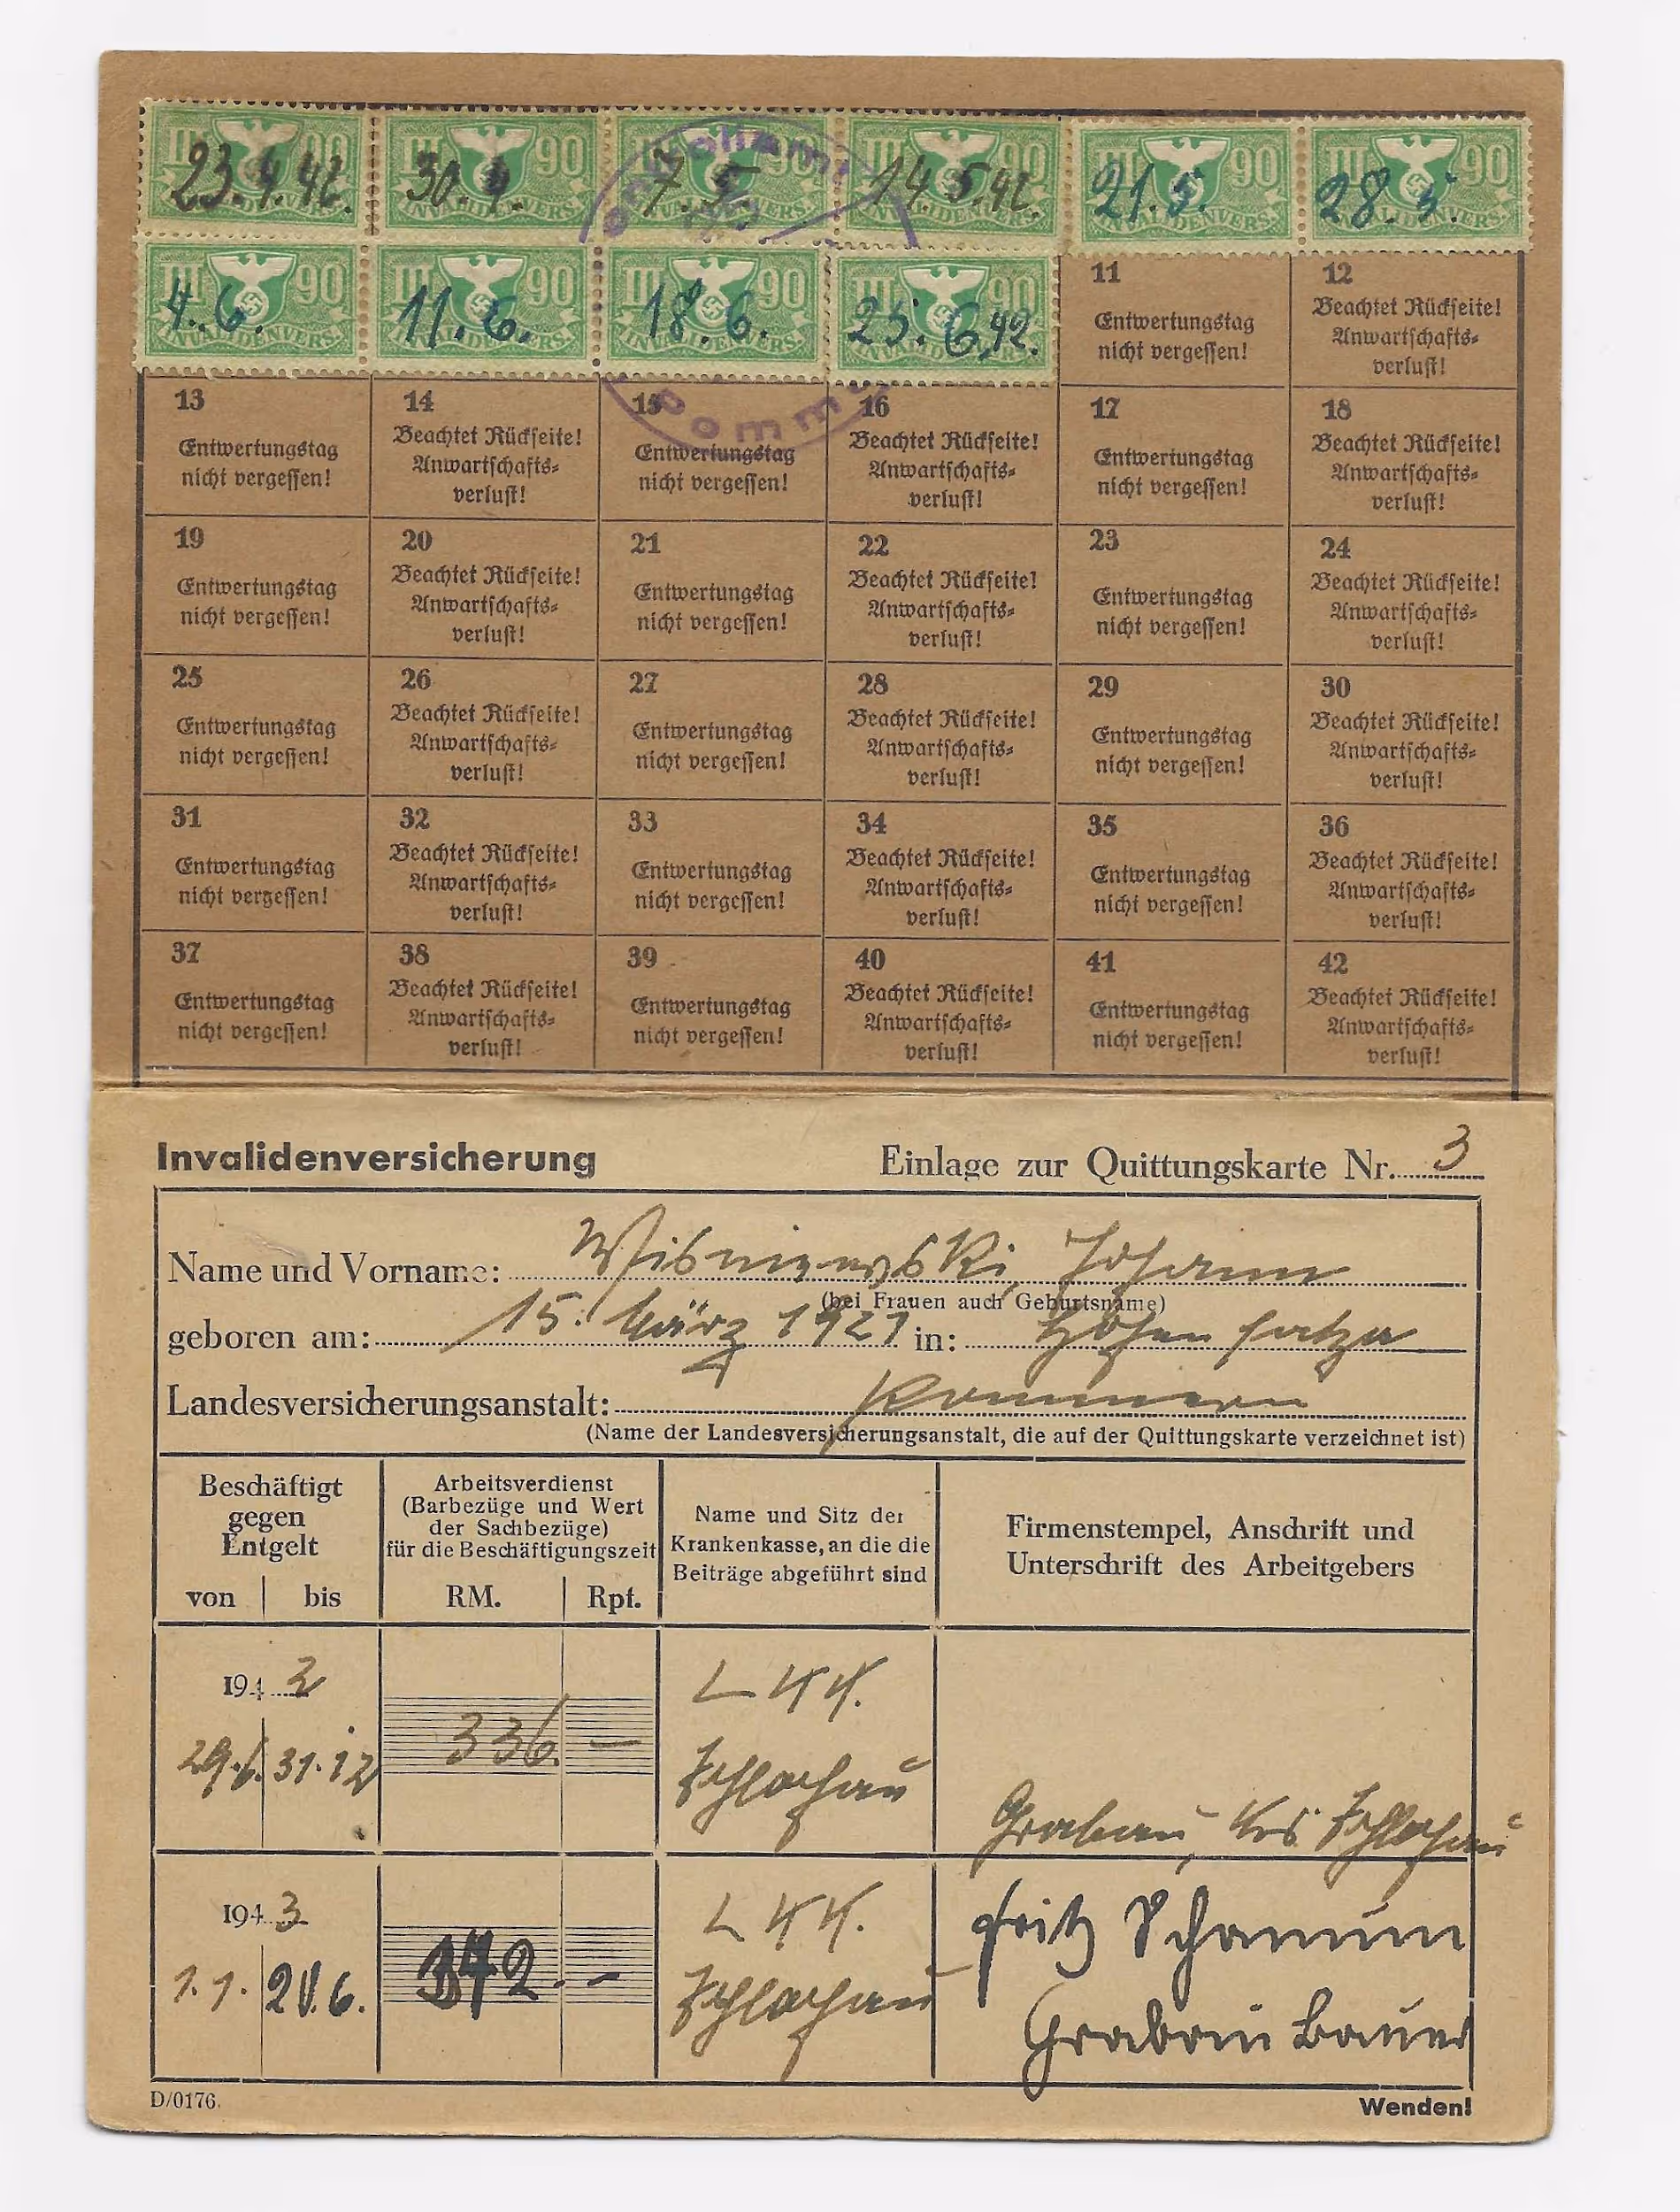 III 90 III 90 III 90 III 90 III 90 III 90
INVALIDENVERS. INVALIDENVERS. INVALIDENVERS. INVALIDENVERS. INVALIDENVERS. INVALIDENVERS.
23.4.42. 30.4. 7.5. 14.5.42. 21.5. 28.5.
III 90 III 90 III 90 III 90
INVALIDENVERS. INVALIDENVERS. INVALIDENVERS. INVALIDENVERS.
4.6. 11.6. 18.6. 25.6.42.
11 12
Entwertungstag Beachtet Rückseite!
nicht vergessen! Anwartschafts-
verlust!
13 14 15 16 17 18
Entwertungstag Beachtet Rückseite! Entwertungstag Beachtet Rückseite! Entwertungstag Beachtet Rückseite!
nicht vergessen! Anwartschafts- nicht vergessen! Anwartschafts- nicht vergessen! Anwartschafts-
verlust! verlust! verlust!
19 20 21 22 23 24
Entwertungstag Beachtet Rückseite! Entwertungstag Beachtet Rückseite! Entwertungstag Beachtet Rückseite!
nicht vergessen! Anwartschafts- nicht vergessen! Anwartschafts- nicht vergessen! Anwartschafts-
verlust! verlust! verlust!
25 26 27 28 29 30
Entwertungstag Beachtet Rückseite! Entwertungstag Beachtet Rückseite! Entwertungstag Beachtet Rückseite!
nicht vergessen! Anwartschafts- nicht vergessen! Anwartschafts- nicht vergessen! Anwartschafts-
verlust! verlust! verlust!
31 32 33 34 35 36
Entwertungstag Beachtet Rückseite! Entwertungstag Beachtet Rückseite! Entwertungstag Beachtet Rückseite!
nicht vergessen! Anwartschafts- nicht vergessen! Anwartschafts- nicht vergessen! Anwartschafts-
verlust! verlust! verlust!
37 38 39 40 41 42
Entwertungstag Beachtet Rückseite! Entwertungstag Beachtet Rückseite! Entwertungstag Beachtet Rückseite!
nicht vergessen! Anwartschafts- nicht vergessen! Anwartschafts- nicht vergessen! Anwartschafts-
verlust! verlust! verlust!
Invalidenversicherung Einlage zur Quittungskarte Nr. 3
Name und Vorname: Wisniewski, Johann
(bei Frauen auch Geburtsname)
geboren am: 15. März 1921 in:
Landesversicherungsanstalt: Pommern
(Name der Landesversicherungsanstalt, die auf der Quittungskarte verzeichnet ist)
Beschäftigt gegen Entgelt
von bis
Arbeitsverdienst
(Barbezüge und Wert
der Sachbezüge)
für die Beschäftigungszeit
RM. Rpf.
Name und Sitz der
Krankenkasse, an die die
Beiträge abgeführt sind
Firmenstempel, Anschrift und
Unterschrift des Arbeitgebers
1942 L K K.
29.6. 31.12 336. — Schlochau
Grabau, Krs. Schlochau
1943 L K K. Fritz Schamun
1.1. 20.6. 372.- Schlochau
Grabau Bauer
D/0176. Wenden!